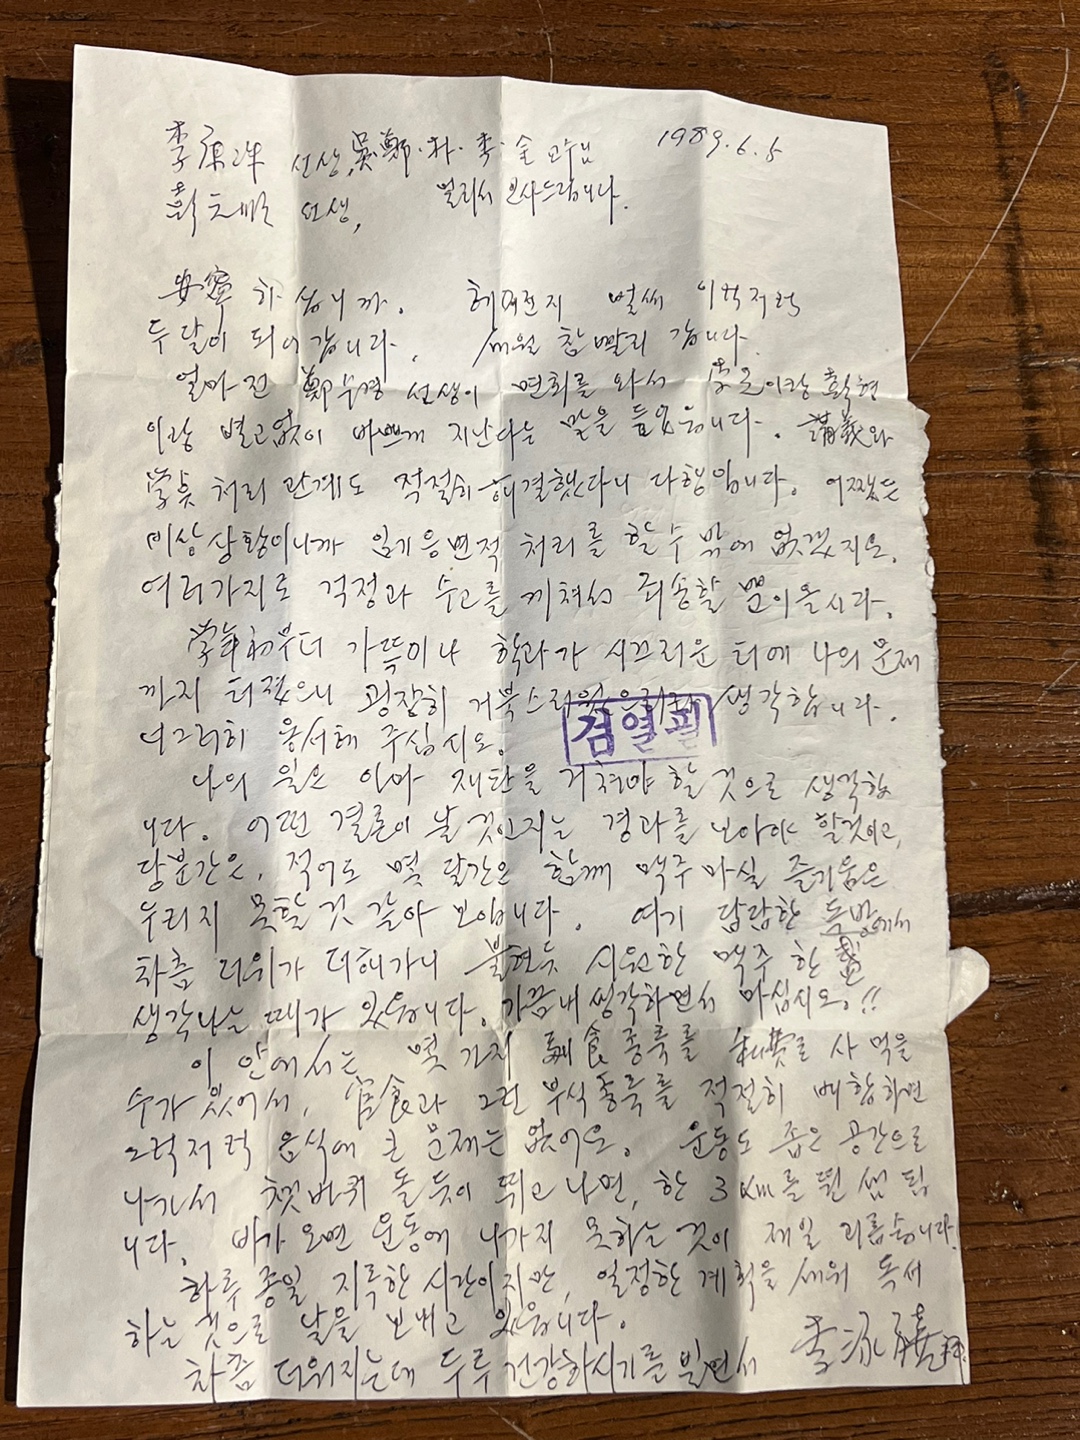 1989. 6. 5
李 선생, 吳·鄭·朴·李·金 교수님
彭元順 선생, 멀리서 인사드립니다.
安寧하십니까. 헤어진지 벌써 이럭저럭
두 달이 되어갑니다. 세월 참 빨리 갑니다.
얼마 전 鄭 선생이 면회를 와서 이랑
이랑 별고없이 바쁘게 지난다는 말을 들었읍니다. 講義와
学点 처리 관계도 적절히 해결했다니 다행입니다. 어쨌든
비상상황이니까 임기응변적 처리를 할 수 밖에 없겠지요.
여러가지로 걱정과 수고를 끼쳐서 죄송할 뿐이올시다.
学年初부터 가뜩이나 학과가 시끄러운 터에 나의 문제
까지 터졌으니 굉장히 거북스러워 생각합니다.
너그러히 용서해 주십시오.
검열필
나의 일은 아마 재판을 거쳐야 할 것으로 생각합
니다. 어떤 결론이 날 것인지는 경과를 보아야 할것이고,
당분간은, 적어도 몇 달간은 함께 맥주 마실 즐거움은
누리지 못할 것 같아 보입니다. 여기 답답한 독방에서
차츰 더위가 더해가니 불현듯 시원한 맥주 한 盃
생각나는 때가 있읍니다. 가끔 내 생각하면서 마십시오.!!
이 안에서는 몇 가지 副食 종류를 私費로 사 먹을
수가 있어서, 官食과 그런 부식종류를 적절히 배합하면
그럭저럭 음식에 큰 문제는 없어요. 운동도 좁은 공간으로
나가서 쳇바퀴 돌듯이 뛰고 나면, 한 3 km를 뛴 셈 됩
니다. 비가 오면 운동에 나가지 못하는 것이 제일 괴롭습니다.
하루 종일 지루한 시간이지만, 일정한 계획을 세워 독서
하는 것으로 날을 보내고 있읍니다.
차츰 더워지는데 두루 건강하시기를 빌면서 李泳禧 拜